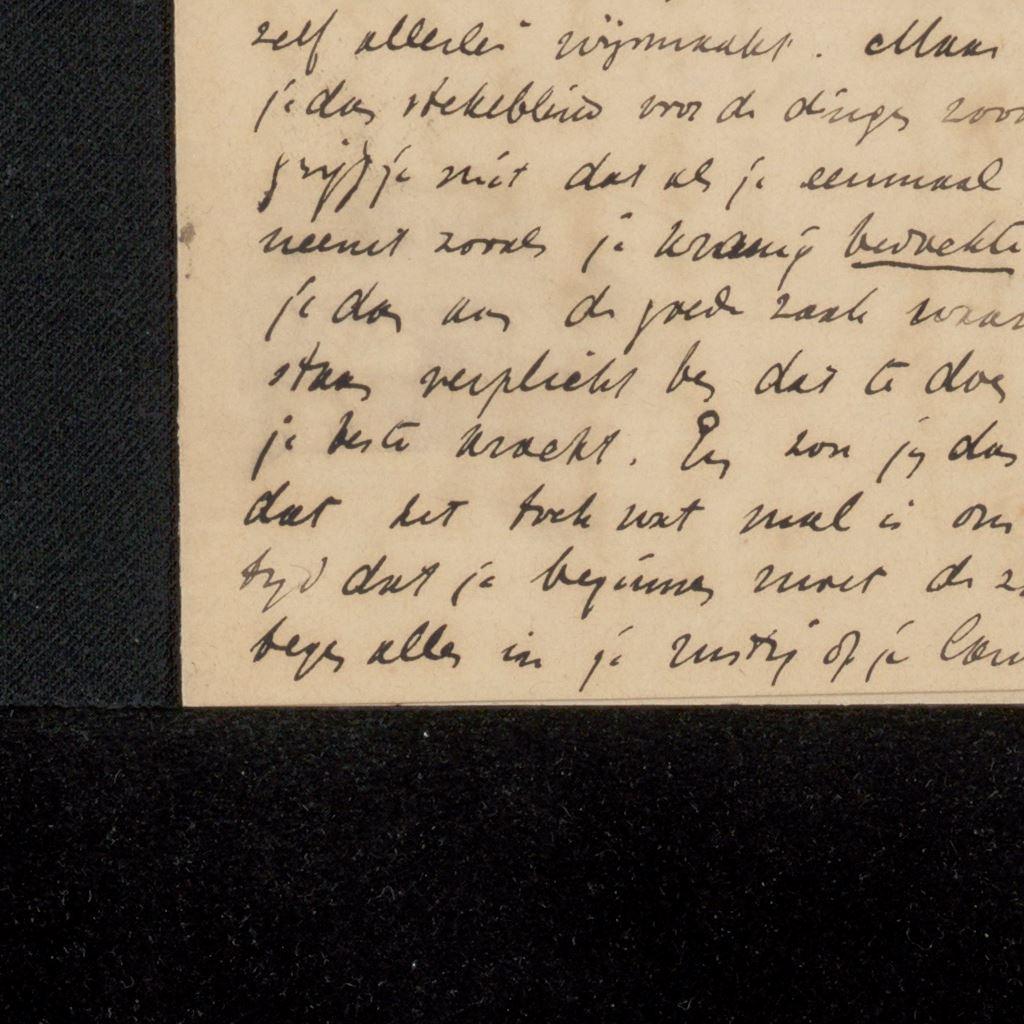 zelf allerlei wijsmaakt. Maar
je dan stekeblind voor de dingen
grijp je niet dat als je eenmaal
neemt zooals je kranig
je dan aan de goede zaak waar
staan verplicht ben dat te doen
je beste kracht. En zou je dan
dat het toch wat mal is om
tijd dat je beginnen moet de
tegen alles in je rustig of je